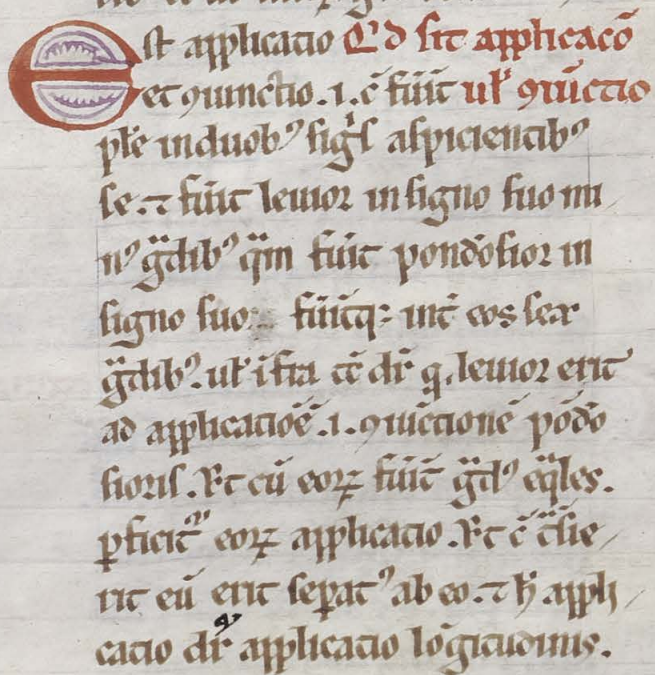 Est applicatio Qd sit applicacõ
et ꝯiunctio .i. c̃ fuit̃ ul̃ ꝯiũctio
ple induobꝰ sigis aspicientibꝰ
se. ⁊ fuit̃ leuior in signo suo mi
nꝰ gͣdibꝰ qͣm fuit̃ pondõsior in
signo suo fuitq̃ int̃ eos sex
gͣdibꝰ. ul̃ ĩfra tc̃ dr̃ q leuior erit
ad applicatiõẽ .i. ꝯiũctionẽ põdõ
sioris. Et cũ eoꝝ fuit̃ gͣdꝰ eq̃les.
ꝑficit᷑ eoꝝ applicatio. Et c̃ tͣ̃sie
rit eũ erit sepatꝰ ab eo. ⁊ h̃ appli
catio dr̃ applicatio lõgitudinis.